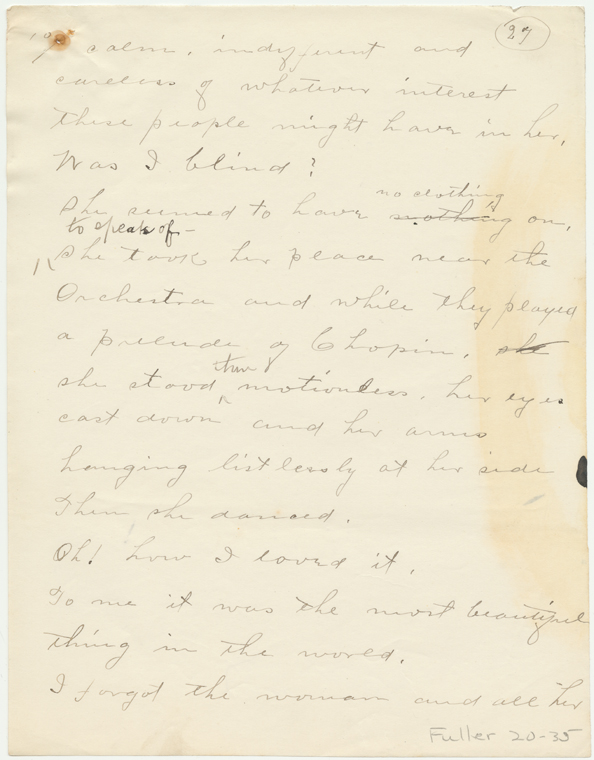 27
calm, indifferent and
careless of whatever interest
these people might have in her.
Was I blind?
no clothing
She seemed to have nothing on,
to speak of -
She took her place near the
Orchestra and while they played
a prelude of Chopin, she
she stood motionless, her eyes
cast down and her arms
hanging listlessly at her side
Then she danced.
Oh! how I loved it,
To me it was the most beautiful
thing in the world.
I forgot the woman and all her
Fuller 20-35